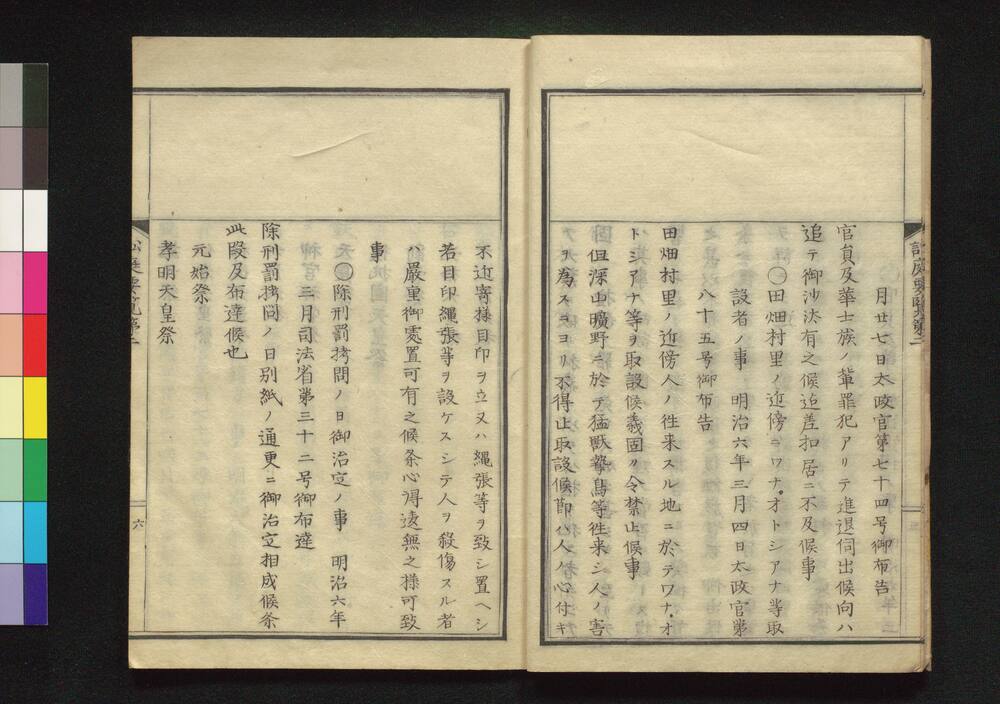 月廿七日太政官第七十四号御布告
官員及華士族ノ輩罪犯アリテ進退伺出候向ハ
追テ御沙汰有之候迠差扣居ニ不及候事
〇田畑村里ノ近傍ニワナ。オトシアナ等取
設者ノ事　明治六年三月四日太政官第
八十五号御布告
田畑村里ノ近傍人ノ徃来スル地ニ於テワナ。オ
トシアナ等ヲ取設候義固リ令禁止候事
但深山曠野ニ於テ猛獣摯鳥等徃来シ人ノ害
ヲ為スニヨリ不得止取設候節ハ人ノ心付キ
不近寄様目印ヲ立又ハ縄張等ヲ致シ置ヘシ
若目印縄張等ヲ設ケスシテ人ヲ殺傷スル者
ハ嚴重御處置可有之候条心得違無之様可致
事
〇除刑罰拷問ノ日御治定ノ事　明治六年
三月司法省第三十二号御布達
除刑罰拷問ノ日別紙ノ通更ニ御治定相成候条
此段及布達候也
元始祭
孝明天皇祭
六